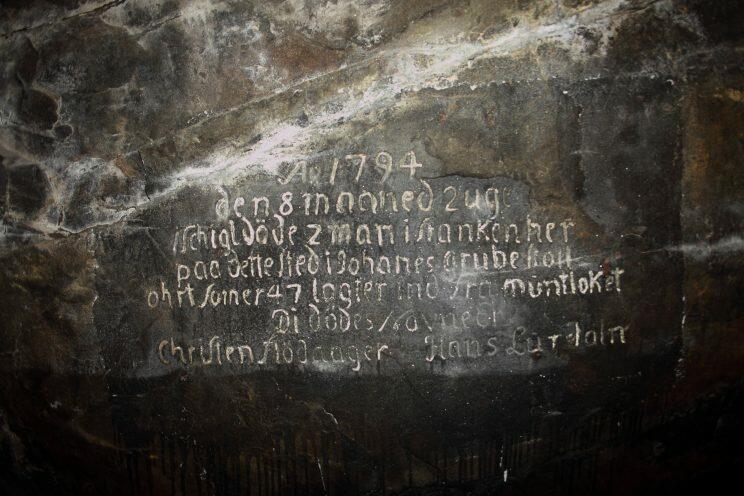 Ao 1794
den 8 maaned 2 uge
ischigt döde 2 man i stanken her
paa dette sted i Johanes grube stoll
ohrt somer 47 lagter ind fra muntloket
Di dödes Navne
Christen Hans